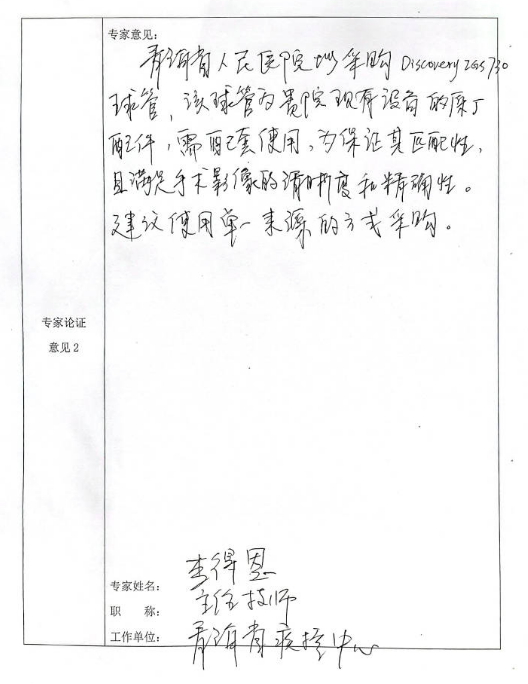 专家意见:
青海省人民医院拟采购 Discovery IGS 730
球管,该球管为贵院现有设备的原厂
配件,需配套使用,为保证其匹配性,
且满足手术影像的清晰度和精确性。
建议使用单一来源的方式采购。
专家论证
意见 2
专家姓名: 李得恩
职 称: 主任技师
工作单位: 青海省疾控中心